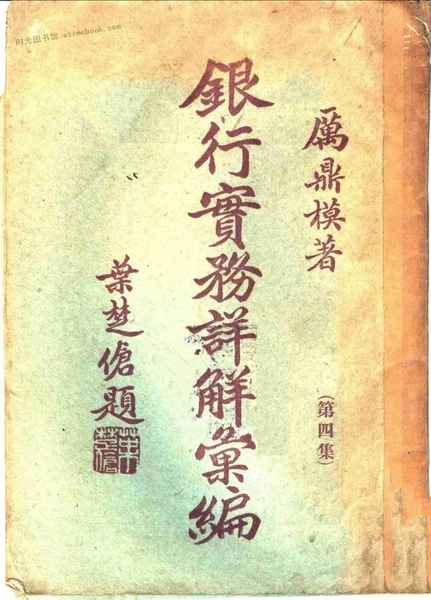 时光图书馆 etimebook.com
厲鼎模著
(第四集)
銀行實務詳解彙編
葉楚傖題
葉楚傖